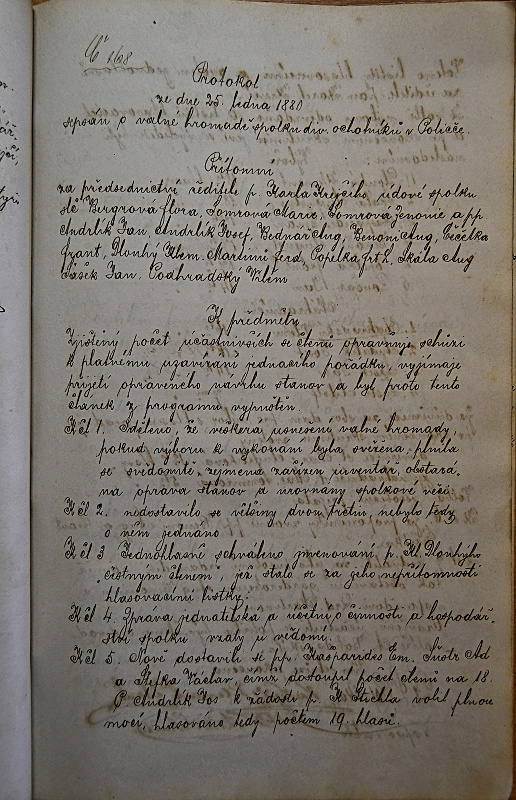 Č 168
Protokol
ze dne 25. ledna 1880
sepsán o valné hromadě spolku div. ochotníků v Poličce.
Přítomni
za předsednictví ředitele p. Karla Krejčího údové spolku
slč Bergrová Flora, Tomrova Marie, Tomrová Jenonie a pp.
Andrlík Jan, Andrlík Josef, Bednář Aug, Benoni Aug, Čečetka
Frant, Dlouhý Klem. Martinů Ferd, Popelka Frt 2, Skála Aug
Šášek Jan, Podhradský Vilém
K předmětu
Zjištěný počet účastnivších se členů opravňuje schůzi
k platnému uzavírání jednacího pořádku, vyjímaje
přijetí opraveného návrhu stanov a byl proto tento
článek z programu vypuštěn.
K čl 1. Sděleno, že veškerá usnesení valné hromady,
pokud výboru k vykonání byla svěřena, plnila
se svědomitě, zejmena zařízen inventář, obstará-
na oprava stanov a urovnány spolkové věci.
K čl 2. nedostavilo se většiny dvou třetin, nebylo tedy
o něm jednáno
K čl 3 Jednohlasně schváleno jmenování p. Kl Dlouhýho
"čestným členem", jež stalo se za jeho nepřítomnosti
hlasovacími lístky.
K čl 4. Zpráva jednatelská a účetní o činnosti a hospodář-
ství spolku vzaty u vědomí.
K čl 5. Nově dostavili se pp. Kašparides Em. Šustr Ad
a Flejka Václav, čímž dostoupil počet členů na 18.
P. Andrlík Jos k žádosti p. K Stichla volil plnou
mocí, hlasováno tedy počtem 19 hlasů.